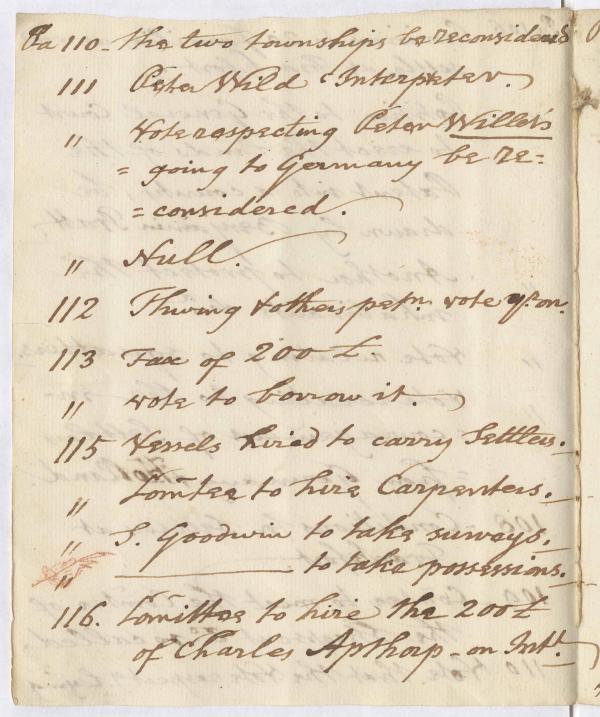 Pa 110 - the two townships be reconsidered
111 Peter Wild Interpreter.
" Vote respecting Peter Willet's
= going to Germany be re=
= considered.
" Null
112 Thwing & others petn. vote yr. on.
113 Tax of 200 £.
" vote to borrow it.
115 Vessels hired to carry Settlers.
" Comtee to hire Carpenters.
" S. Goodwin to take surveys.
" ———— to take possessions.
116. Comittee to hire the 200£
of Charles Apthorp - on Intt.